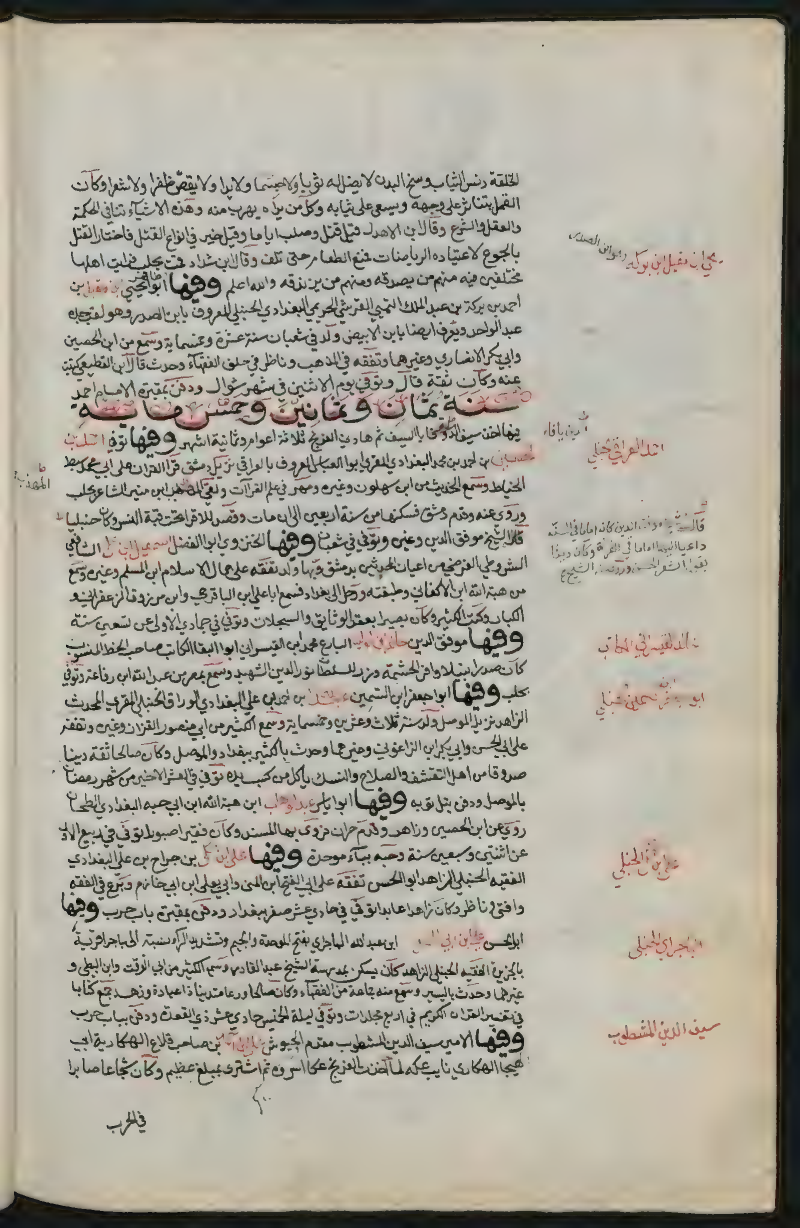 الخلقة دنس الثياب وسخ البدن لا يغسل له ثوبا ولا جسما ولا يدا ولا يقص ظفرا ولا شعرا وكان
القمل يتناثر على وجهه ويسعى على ثيابه وكل من يراه يهرب منه وهذه الاشياء تنافي الحكمة
والعقل والشرع وقال ابن الاهدل قيل قتل وصلب اياما وقيل خير في انواع القتل فاختار القتل
بالجوع لاعتياده الرياضات فمنع الطعام حتى تلف وقال ابن شداد قمت بحلب فرايت اهلها
مختلفين فيه منهم من يصدقه ومنهم من يزندقه والله اعلم وفيها ابوالفتح يحيى بن مقبل بن
احمد بن بركة بن عبد الملك التميمي القرشي الحريمي البغدادي الحنبلي المعروف بابن الصدر وهو لقب جده
عبد الواحد ويعرف ايضا بابن الابيض ولد في شعبان سنة عشرة وخمسماية وسمع من ابن الحصين
وابي بكر الانصاري وغيرهما وتفقه في المذهب وناظر في حلق الفقهاء وحدث قال ابن القطيعي كتبت
عنه وكان ثقة قال وتوفي يوم الاثنين في شهر شوال ودفن بمقبرة الامام احمد
سنة ثمان وثمانين وخمس ماية
فيها اخذ سيف بالسيف ثم هادن الفرنج ثلاثة اعوام وثمانية اشهر وفيها توفي
بن احمد بن محمد البغدادي المقري ابوا العباس المعروف بالعراقي نزيل دمشق قرا القران على ابي محمد سبط
الخياط وسمع الحديث من ابن سهلون وغيره ومهر في علم القراآت ولقي ابن منير الشاعر بحلب
وروى عنه وقدم دمشق فسكنها من سنة اربعين الى ان مات وقصر للاقراء تحت قبة النسر وكان حنبليا
قال الشيخ موفق الدين وغيره وتوفي في شعبان وفيها الجنزوي ابوا الفضل اسمعيل الشافعي
الشروطي الفرضي من اعيان المحدثين بدمشق وبها ولد تفقه على جمال الاسلام ابن المسلم وغيره وسمع
من هبة الله ابن الاكفاني وطبقته ورحل الى بغداد فسمع ابا علي ابن الباقرحي وابن مرزوقا الزعفراني و
الكبار وكتب الكثير وكان بصيرا بعقد الوثائق والسجلات وتوفي في جمادى الاولى عن تسعين سنة
وفيها موفق الدين خالد محمد ابن القيسراني ابوا البقا الكاتب صاحب الخط المنسوب
كان صدرا نبيلا وافر الحشمة وزر للسلطان نور الدين الشهيد وسمع بمصر من عبد الله ابن رفاعة وتوفي
بحلب وفيها ابوا جعفر ابن السمين بن احمد بن علي البغدادي الوراق الحنبلي المقري المحدث
الزاهد نزيل الموصل ولد سنة ثلاث وعشرين وخمسماية وسمع الكثير من ابي منصور القزاز وغيره وتفقه
على ابي الحسن وابي بكر ابن الزاغوني وغيرهما وحدث بالكثير ببغداد والموصل وكان صالحا ثقة دينا
صدوقا من اهل التقشف والصلاح والنسك ياكل من كسب يده توفي في العشر الاخير من شهر رمضان
بالموصل ودفن بتل توبه وفيها ابوا ياسر عبد الوهاب ابن هبة الله ابن ابي حبه البغدادي الطحان
روى عن ابن الحصين وزاهر وقدم حران فروى بها المسند وكان فقيرا صبورا توفي في ربيع الاول
عن اثنتين وسبعين سنة وحبه بباء موحدة وفيها علي بن مكي بن جراح بن علي البغدادي
الفقيه الحنبلي الزاهد ابو الحسن تفقه على ابي الفتح ابن المنى وابي يعلى ابن ابي خازم وبرع في الفقه
وافتى وناظر وكان زاهدا عابدا توفي في حادي عشر صفر ببغداد ودفن بمقبرة باب حرب وفيها
ابوالحسن ابن عبد الله الباجرائي بفتح الموحدة والجيم وتشديد الراء نسبة الى باجرا قرية
بالجزيرة الفقيه الحنبلي الزاهد كان يسكن بمدرسة الشيخ عبد القادر وسمع الكثير من ابي الوقت وابن البطي و
غيرهما وحدث باليسير وسمع منه جماعة من الفقهاء وكان صالحا ورعا متدينا ذا عبادة وزهد جمع كتابا
في تفسير القران الكريم في اربع مجلدات وتوفي ليلة الخميس حادي عشر ذي القعدة ودفن بباب حرب
وفيها الامير سيف الدين المشطوب مقدم الجيوش بن صاحب قلاع الهكارية ابي
هيجا الهكاري نايب عكه لما اخذت الفرنج عكا اسروه ثم اشترى بمبلغ عظيم وكان شجاعا صابرا
في الحرب
يحيى ابن مقبل ابن بركه
احمد العراقي حنبلي
خالد القيسراني الكاتب
علي ابن مكي الحنبلي
الباجراي الحنبلي
سيف الدين المشطوب